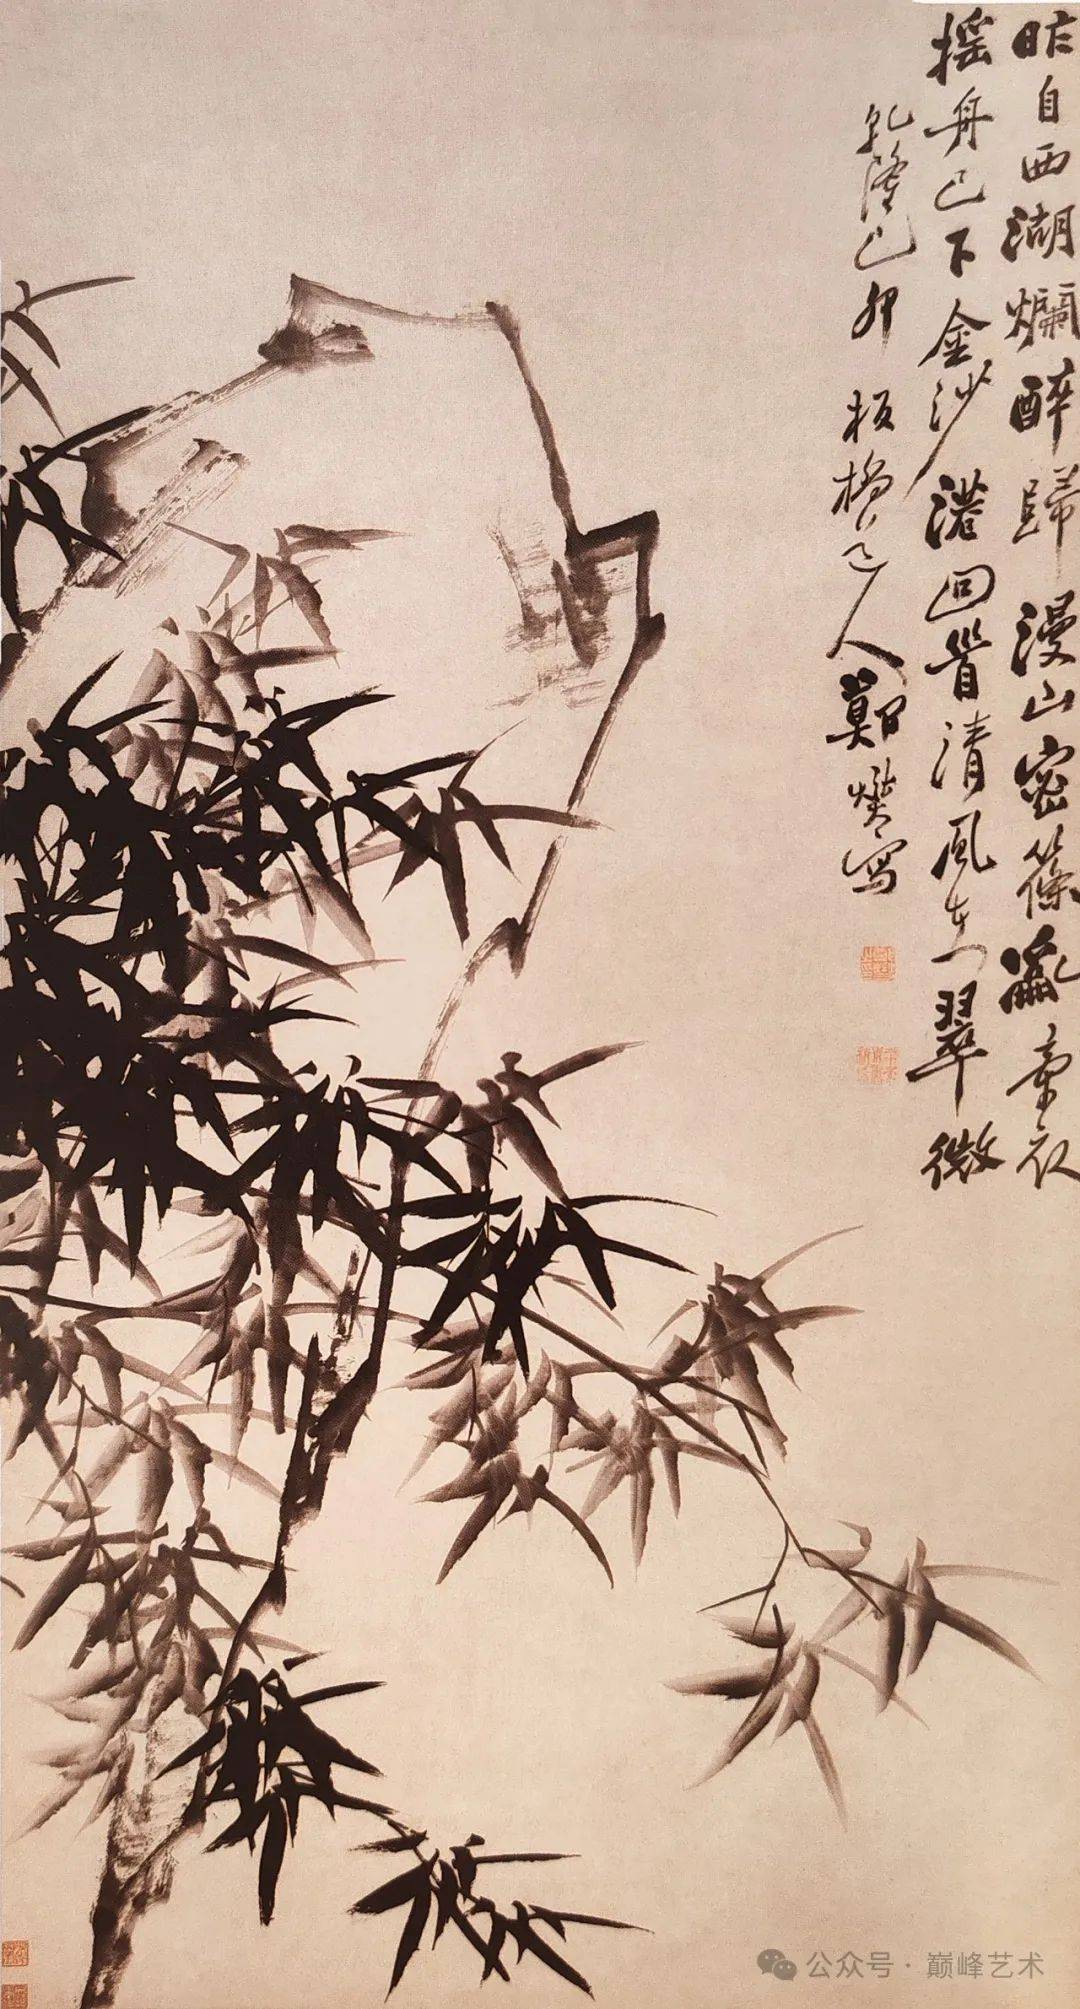 昨自西湖爛醉歸漫山密篠亂牽衣
搖舟已下金沙港回首清風在翠微
乾隆己卯板橋道人鄭燮寫
公众号 · 巅峰艺术